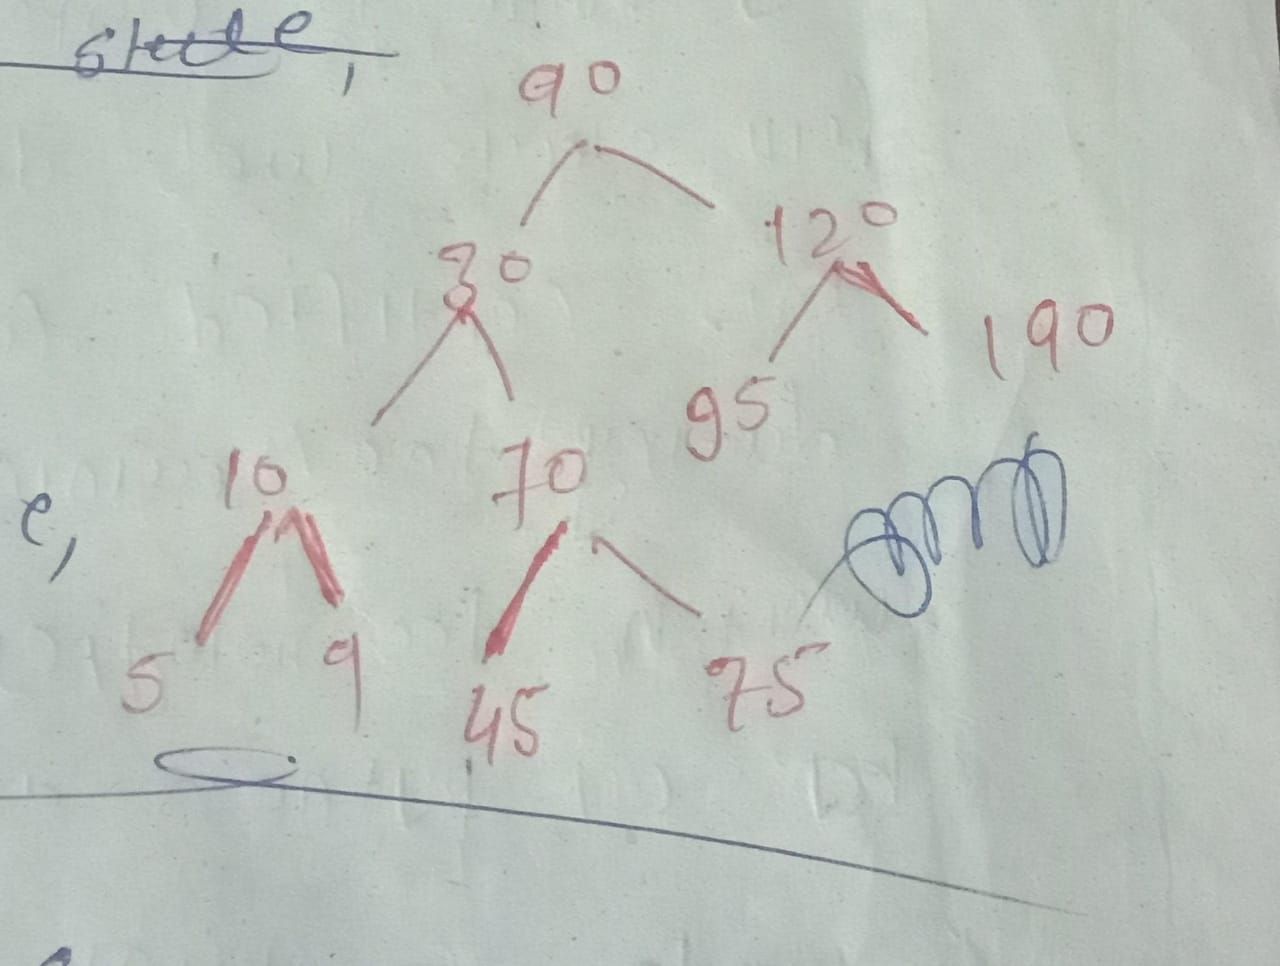 state,
90
30 120
190
95
10 70
e,
5 9 45 75